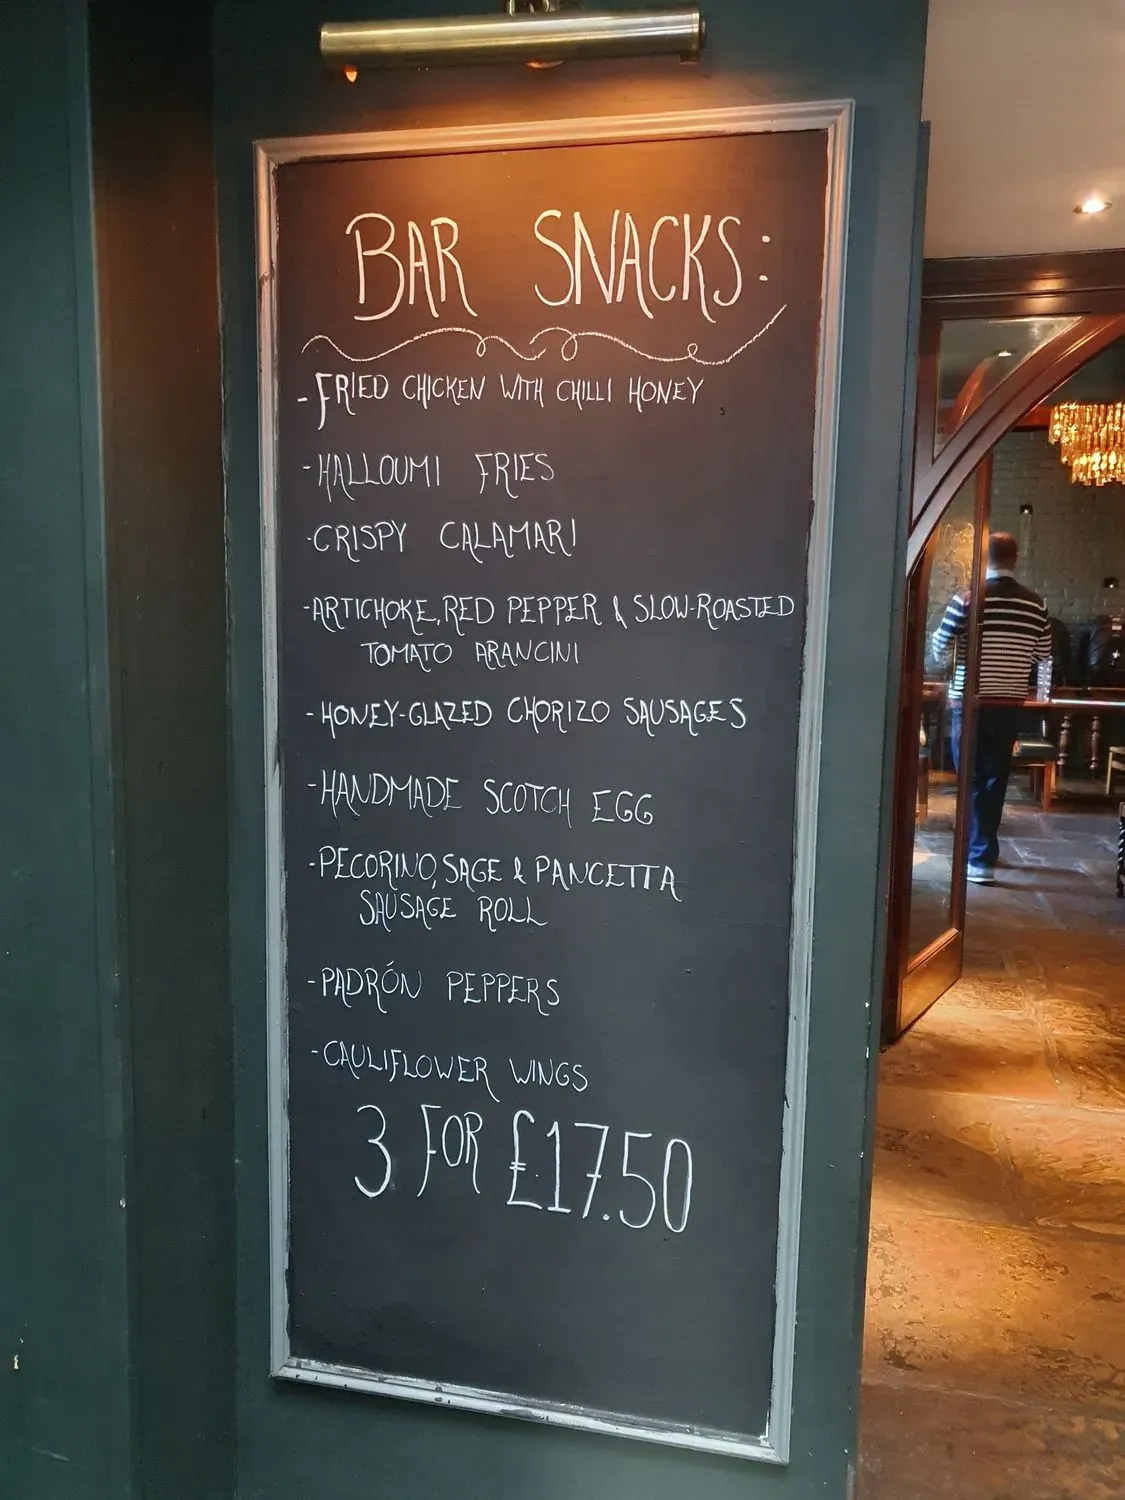 BAR SNACKS:
-FRIED CHICKEN WITH CHILLI HONEY
-HALLOUMI FRIES
-CRISPY CALAMARI
-ARTICHOKE, RED PEPPER & SLOW-ROASTED
TOMATO ARANCINI
-HONEY-GLAZED CHORIZO SAUSAGES
-HANDMADE SCOTCH EGG
-PECORINO, SAGE & PANCETTA
SAUSAGE ROLL
-PADRÓN PEPPERS
-CAULIFLOWER WINGS
3 FOR £17.50